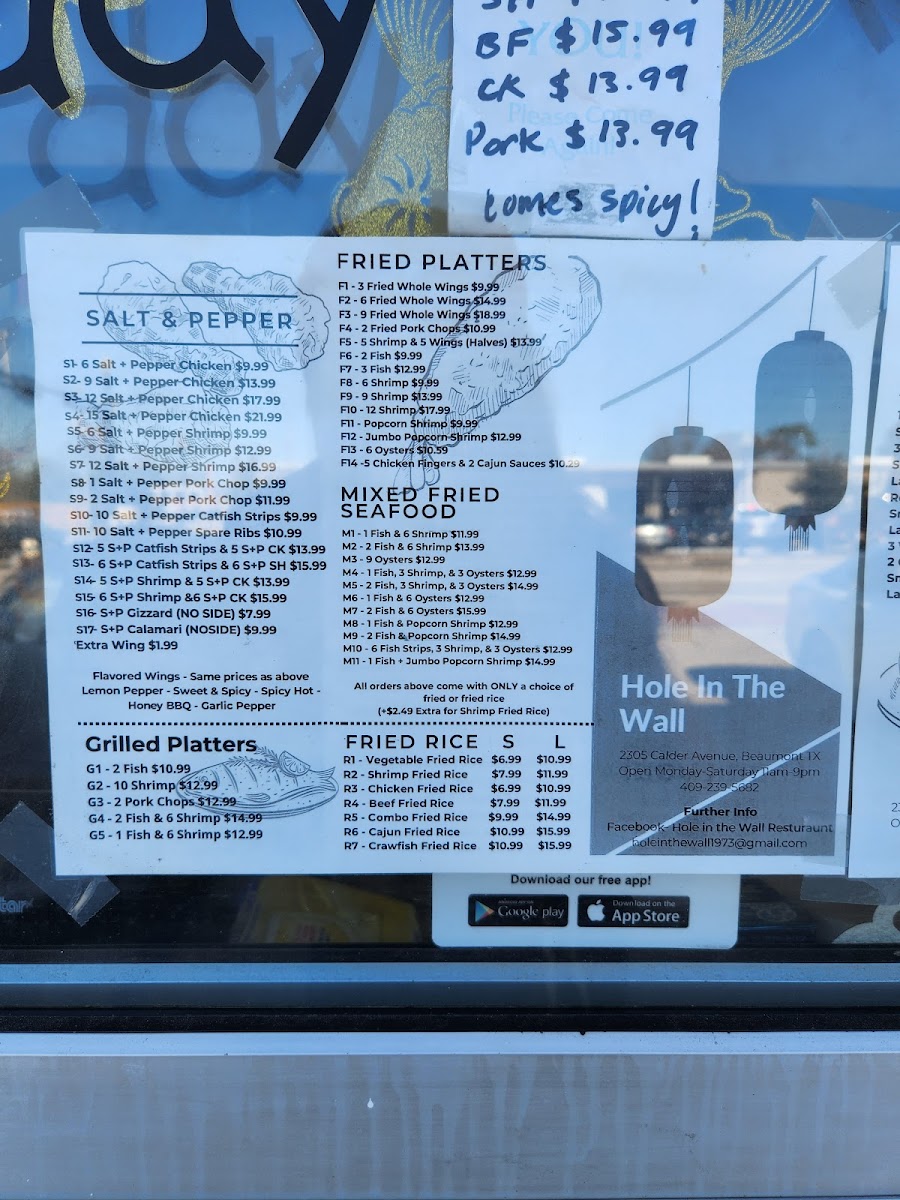 BF $15.99
CK $13.99
Pork $13.99
Comes spicy!
SALT & PEPPER
S1- 6 Salt + Pepper Chicken $9.99
S2- 9 Salt + Pepper Chicken $13.99
S3- 12 Salt + Pepper Chicken $17.99
S4- 15 Salt + Pepper Chicken $21.99
S5- 6 Salt + Pepper Shrimp $9.99
S6- 9 Salt + Pepper Shrimp $12.99
S7- 12 Salt + Pepper Shrimp $16.99
S8- 1 Salt + Pepper Pork Chop $9.99
S9- 2 Salt + Pepper Pork Chop $11.99
S10- 10 Salt + Pepper Catfish Strips $9.99
S11- 10 Salt + Pepper Spare Ribs $10.99
S12- 5 S+P Catfish Strips & 5 S+P CK $13.99
S13- 6 S+P Catfish Strips & 6 S+P SH $15.99
S14- 5 S+P Shrimp & 5 S+P CK $13.99
S15- 6 S+P Shrimp &6 S+P CK $15.99
S16- S+P Gizzard (NO SIDE) $7.99
S17- S+P Calamari (NOSIDE) $9.99
'Extra Wing $1.99
Flavored Wings - Same prices as above
Lemon Pepper - Sweet & Spicy - Spicy Hot -
Honey BBQ - Garlic Pepper
FRIED PLATTERS
F1 - 3 Fried Whole Wings $9.99
F2 - 6 Fried Whole Wings $14.99
F3 - 9 Fried Whole Wings $18.99
F4 - 2 Fried Pork Chops $10.99
F5 - 5 Shrimp & 5 Wings (Halves) $13.99
F6 - 2 Fish $9.99
F7 - 3 Fish $12.99
F8 - 6 Shrimp $9.99
F9 - 9 Shrimp $13.99
F10 - 12 Shrimp $17.99
F11 - Popcorn Shrimp $9.99
F12 - Jumbo Popcorn Shrimp $12.99
F13 - 6 Oysters $10.59
F14 -5 Chicken Fingers & 2 Cajun Sauces $10.29
MIXED FRIED
SEAFOOD
M1 - 1 Fish & 6 Shrimp $11.99
M2 - 2 Fish & 6 Shrimp $13.99
M3 - 9 Oysters $12.99
M4 - 1 Fish, 3 Shrimp, & 3 Oysters $12.99
M5 - 2 Fish, 3 Shrimp, & 3 Oysters $14.99
M6 - 1 Fish & 6 Oysters $12.99
M7 - 2 Fish & 6 Oysters $15.99
M8 - 1 Fish & Popcorn Shrimp $12.99
M9 - 2 Fish & Popcorn Shrimp $14.99
M10 - 6 Fish Strips, 3 Shrimp, & 3 Oysters $12.99
M11 - 1 Fish + Jumbo Popcorn Shrimp $14.99
All orders above come with ONLY a choice of
fried or fried rice
(+$2.49 Extra for Shrimp Fried Rice)
Grilled Platters
G1 - 2 Fish $10.99
G2 - 10 Shrimp $12.99
G3 - 2 Pork Chops $12.99
G4 - 2 Fish & 6 Shrimp $14.99
G5 - 1 Fish & 6 Shrimp $12.99
FRIED RICE S L
R1 - Vegetable Fried Rice $6.99 $10.99
R2 - Shrimp Fried Rice $7.99 $11.99
R3 - Chicken Fried Rice $6.99 $10.99
R4 - Beef Fried Rice $7.99 $11.99
R5 - Combo Fried Rice $9.99 $14.99
R6 - Cajun Fried Rice $10.99 $15.99
R7 - Crawfish Fried Rice $10.99 $15.99
Hole In The
Wall
2305 Calder Avenue, Beaumont TX
Open Monday-Saturday 11am-9pm
409-239-5682
Further Info
Facebook- Hole in the Wall Resturaunt
holeinthewall1973@gmail.com
Download our free app!
Google play
Download on the
App Store